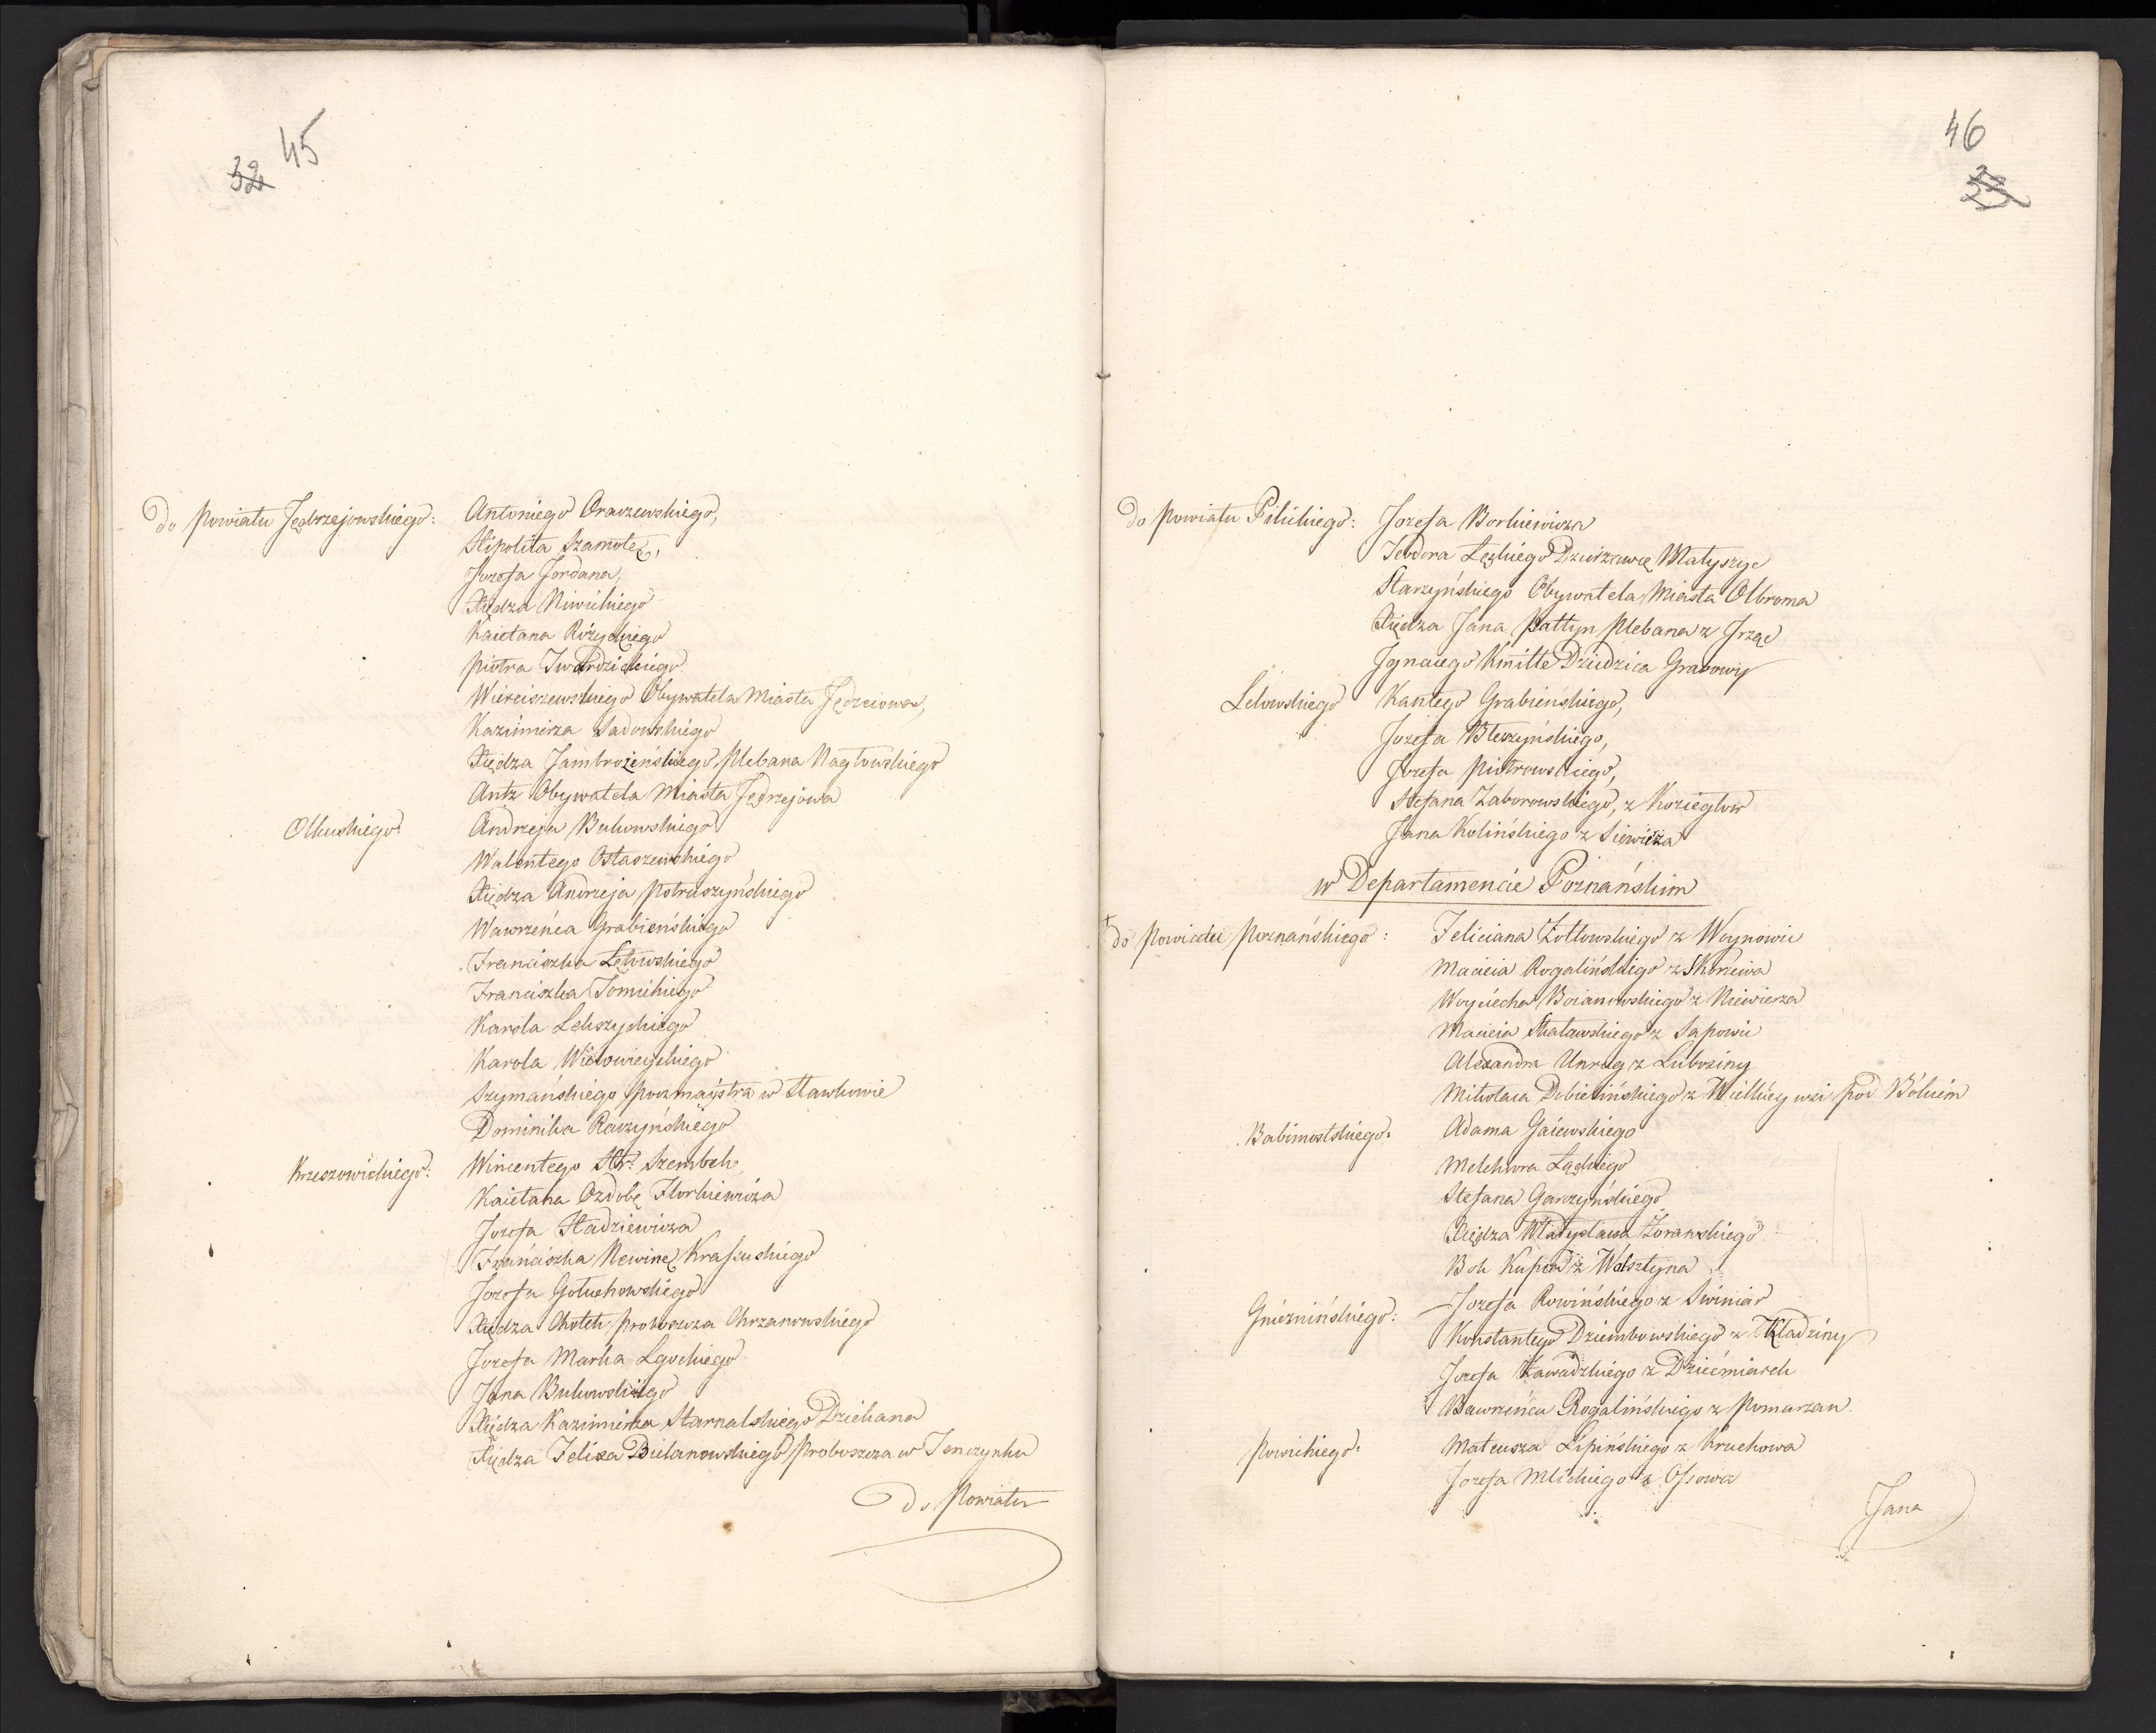 45
32
do Powiatu Jędrzejowskiego: Antoniego Oraczewskiego,
Hipolita Szamotę,
Jozefa Jordana,
Xiędza Niwickiego
Kaietana Różyckiego
Piotra Twardzickiego
Wierciszewskiego Obywatela Miasta Jędrzeiowa,
Kazimierza Sadowskiego
Xiędza Jambrozeńskiego, Plebana Nagłowskiego
Antz Obywatela Miasta Jędrzejowa
Olkuskiego: Andrzeja Bukowskiego
Walentego Ostaszewskiego
Xiędza Andrzeja Potruszyńskiego
Wawrzeńca Grabieńskiego
Franciszka Łętowskiego
Franciszka Tomickiego
Karola Lekszyckiego
Karola Wielowieyskiego
Szymańskiego Poczmaystra w Sławkowie
Dominika Raczyńskiego
Krzeszowickiego: Wincentego Hr: Szembek,
Kaietana Ozdobę Florkiewicza
Jozefa Stadziewicza
Franciszka Newinę Krassuskiego
Jozefa Gołuchowskiego
Xiędza Chotek Proboszcza Chrzanowskiego
Jozefa Marka Lgockiego
Jana Bukowskiego
Xiędza Kazimierza Starnalskiego Dziekana
Xiędza Felixa Bielanowskiego Proboszcza w Tenczynku
do Powiatu
46
33
do Powiatu Pilickiego: Jozefa Borkiewicza
Teodora Łęskiego Dzierzawcę Małyszyc
Starzyńskiego Obywatela Miasta Olbroma
Xiędza Jana Pałtyn Plebana z Jrząc
Jgnacego Kmitte Dziedzica Grabowy
Lelowskiego Kantego Grabieńskiego,
Jozefa Bleszyńskiego,
Jozefa Piotrowskiego,
Stefana Zaborowskiego, z Koziegłow
Jana Kolińskiego z Siewierza
w Departamencie Poznańskim
do Powiatu Poznańskiego: Feliciana Żołtowskiego z Woynowic
Macieia Rogalińskiego z Skorzewa
Woyciecha Boianowskiego z Niewierza
Macieia Skaławskiego z Sapowic
Alexandra Unrug z Lubosiny
Mikołaia Dobielińskiego z Wielkiey wsi pod Bukiem
Babimostskiego: Adama Gaiewskiego
Melchiora Łąckiego
Stefana Garczyńskiego
Xiędza Władysława Żorawskiego
Bok Kupca z Wolsztyna
Gnieznińskiego: Jozefa Rowińskiego z Swiniar
Konstantego Dziembowskiego z Kładziny
Jozefa Zawadzkiego z Dziećmiarek
Wawrzeńca Rogalińskiego z Pomarzan
Powickiego: Mateusza Lipińskiego z Kruchowa
Jozefa Mlickiego z Ossowa
Jana